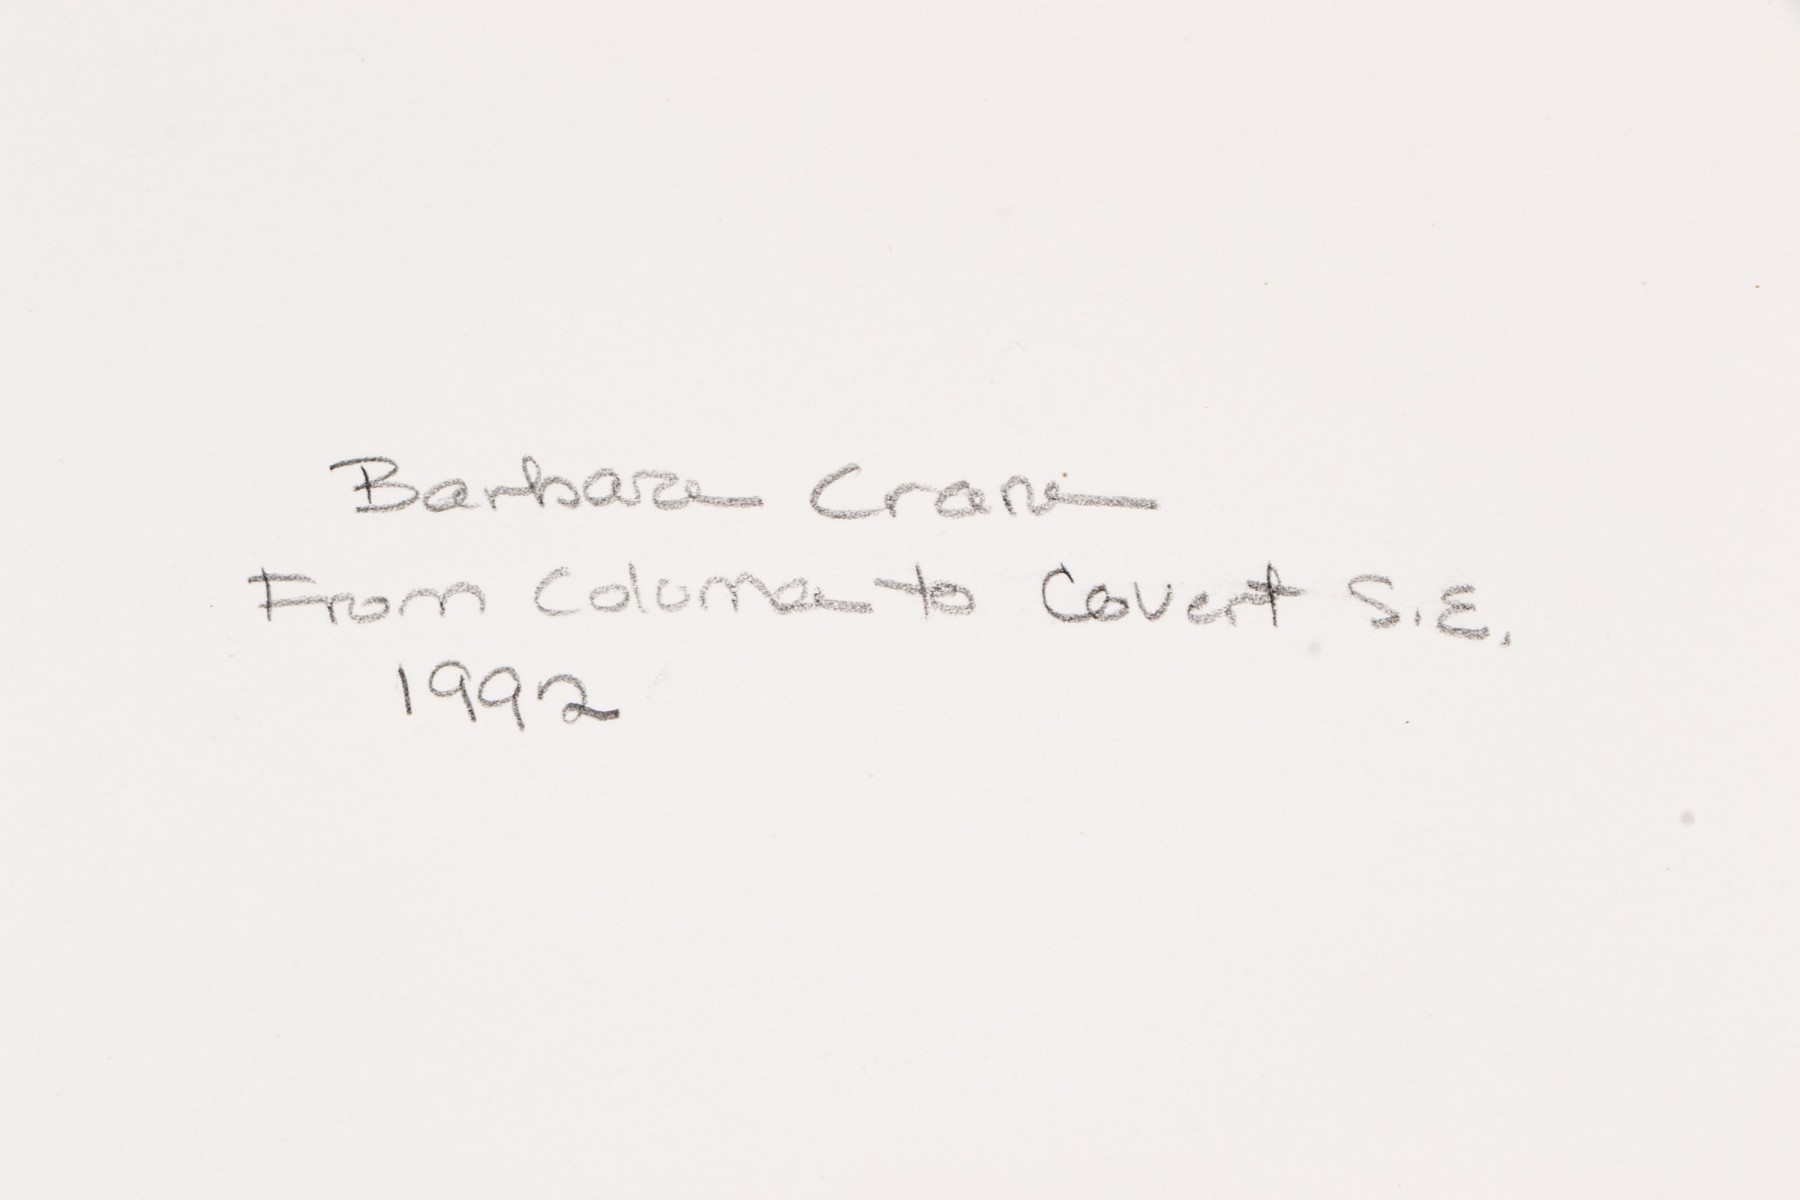 Barbara Crane
From Coloma to Covert S.E.
1992